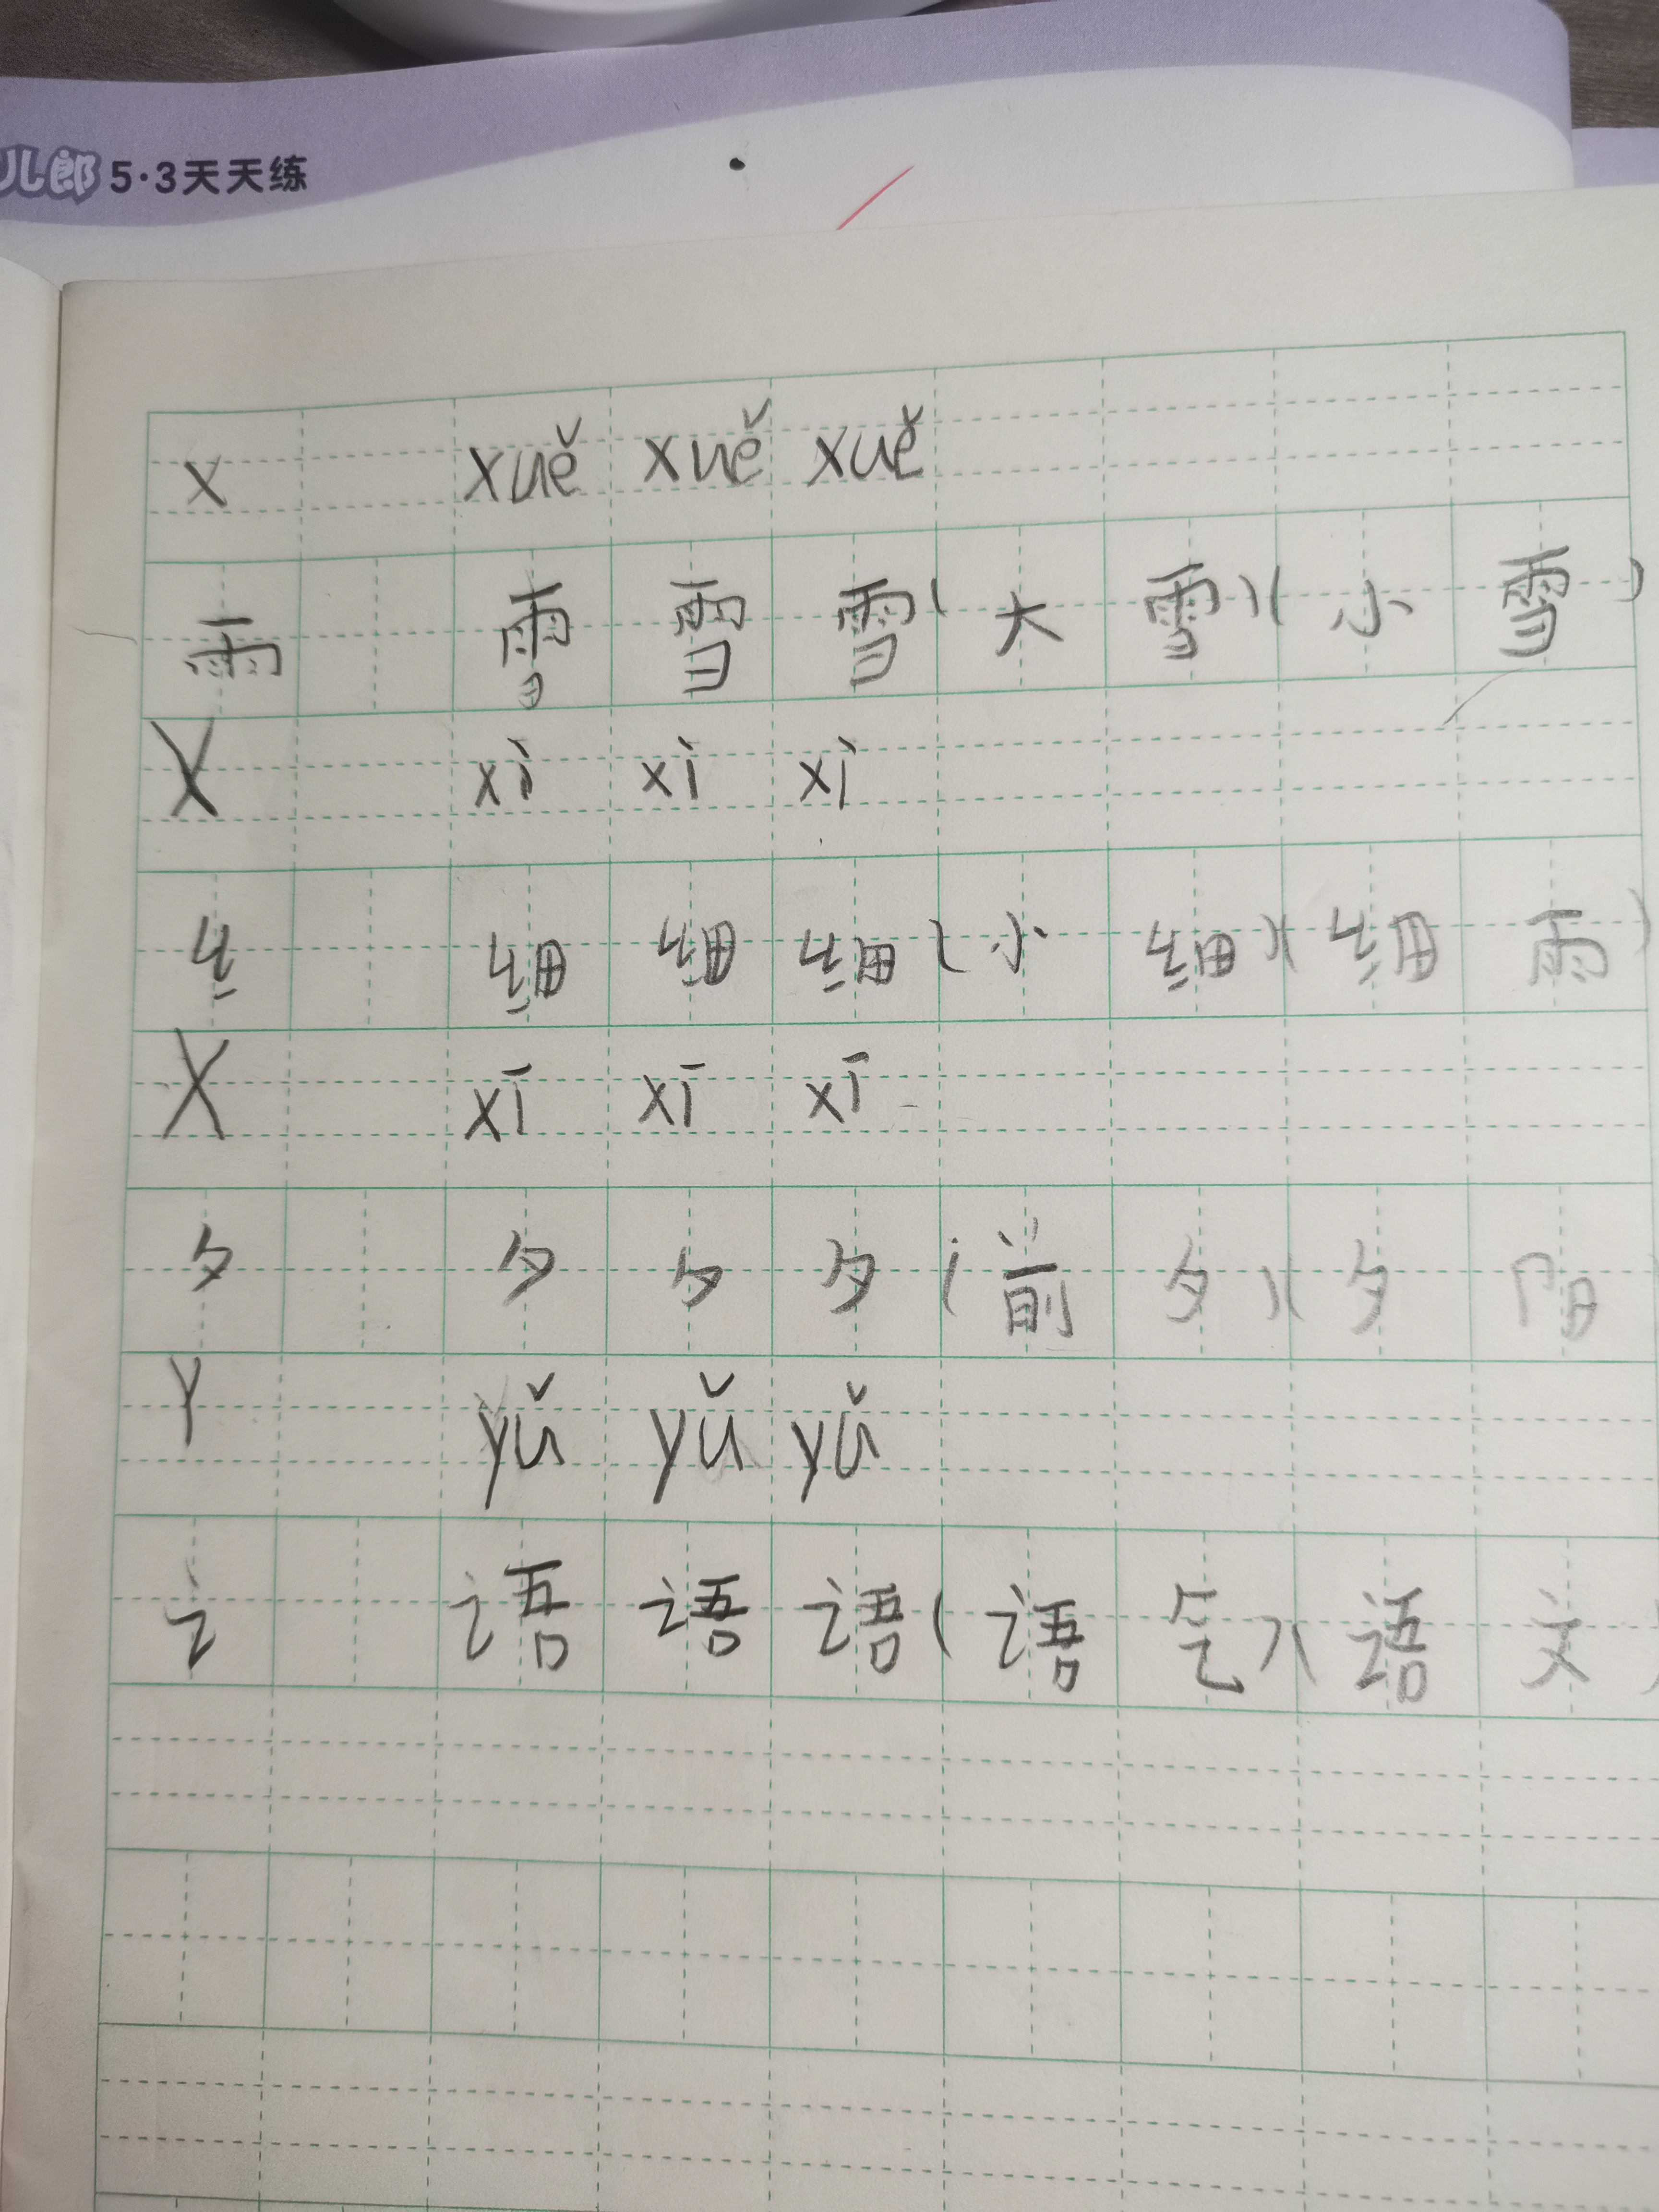 儿郎 5·3天天练
x xuě xuě xuě
雨 雪 雪 雪(大雪)(小雪)
X xì xì xì
纟 细 细 细(小细)(细雨)
X xī xī xī
夕 夕 夕 夕(前夕)(夕阳
Y yǔ yǔ yǔ
讠 语 语 语(语气)(语文)